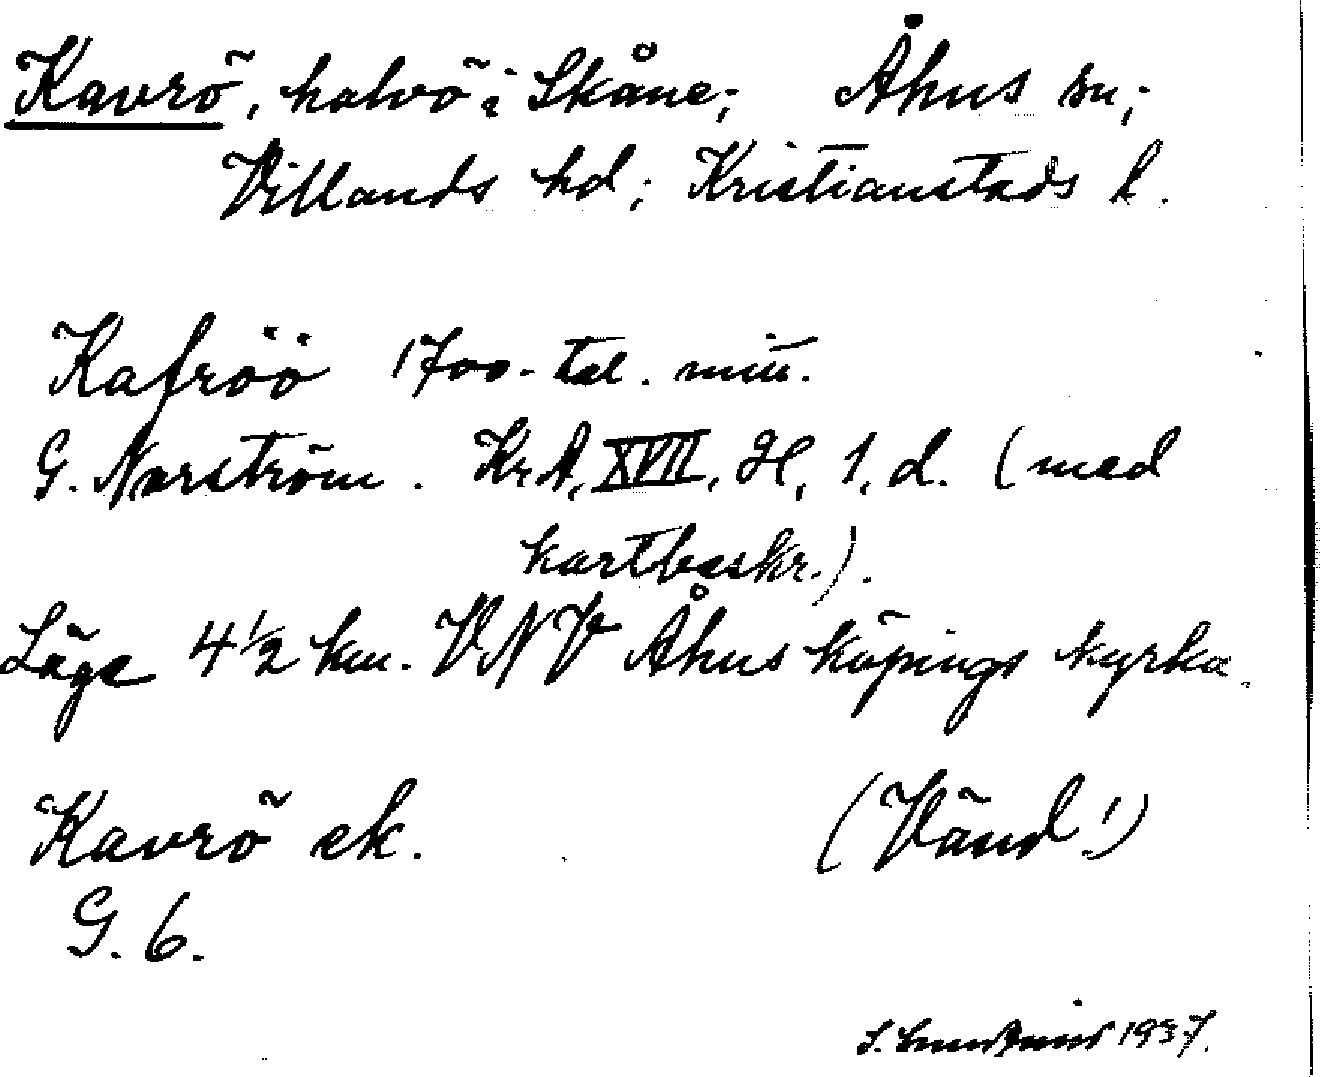 Kavrö, halvö i Skåne; Åhus sn;
Villands hd; Kristianstads l.
Kafröö 1700-tal. mitt.
G. Norström. Kr.A, XVII, H, 1, d. (med
kartbeskr.).
Läge 4 1/2 km. VNV Åhus köpings kyrka.
Kavrö ek. (Vänd!)
G. 6.
1937.